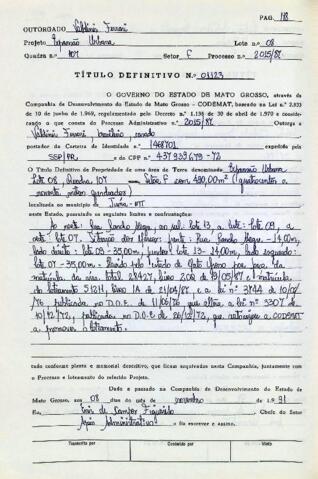 PAG. 118
OUTORGADO Valdinir Ferrari
Projeto Expansão Urbana Lote n.o 08
Quadra n.o 107 Setor F Processo n.o 2015/87
TÍTULO DEFINITIVO N.o 01123
O GOVERNO DO ESTADO DE MATO GROSSO, através da
Companhia de Desenvolvimento do Estado de Mato Grosso - CODEMAT, baseado na Lei n.o 2.933
de 10 de junho de 1969, regulamentado pelo Decreto n.o 1.138 de 30 de abril de 1970 e considerando
o que consta do Processo Administrativo n.o 2015/87 Outorga a
Valdinir Ferrari, brasileiro, casado
portador da Carteira de Identidade n.o 1468701
SSP/PR e do CPF n.o 437939679-72
O Título Definitivo de Propriedade de uma área de Terra denominada Expansão Urbana
Lote 08, Quadra 107 Setor F com 490,00m² (quatrocentos e
noventa metros quadrados)
localizada no município de Juína-MT
neste Estado, possuindo os seguintes limites e confrontações:
Ao norte: Rua ao sul: lote 13, a leste: lote 09, a
oeste: lote 07. Frente: Rua 14,00m,
lado direito: lote 09 - 35,00m, fundos: lote 13 - 14,00m, lado esquerdo:
lote 07 - 35,00m. Estado de Mato Grosso
matrícula total 28427, livro e matrícula
do loteamento 51211, livro 1A de 21/04/87, e a lei nº 3744 de 10/06/
76 publicada no D.O.E. de 11/06/76 que altera a lei nº 3307 de
10/12/72, publicada no D.O.E de 26/12/72, que autorizou a CODEMAT
a promover o loteamento.
tudo conforme planta e memorial descritivo, que ficam arquivados nesta Companhia, juntamente com
o Processo e loteamento do referido Projeto.
Dado e passado na Companhia de Desenvolvimento do Estado de
Mato Grosso, aos 08 dias do mês de novembro de 1991
Eu, de Campos Figueiredo Chefe do Setor
Apoio Administrativo o fiz escrever e assino.
Transcrito por Conferido por Visto